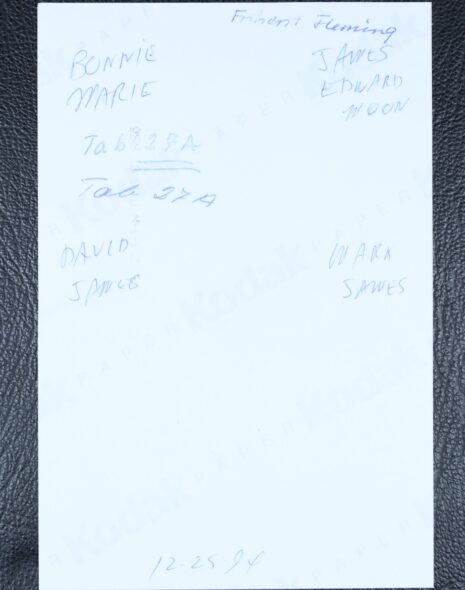 Fleming
BONNIE
MARIE
JAMES
EDWARD
MOON
Tab 27A
Tab 27A
DAVID
JAMES
MARK
JAMES
Kodak PAPER
12-25 94